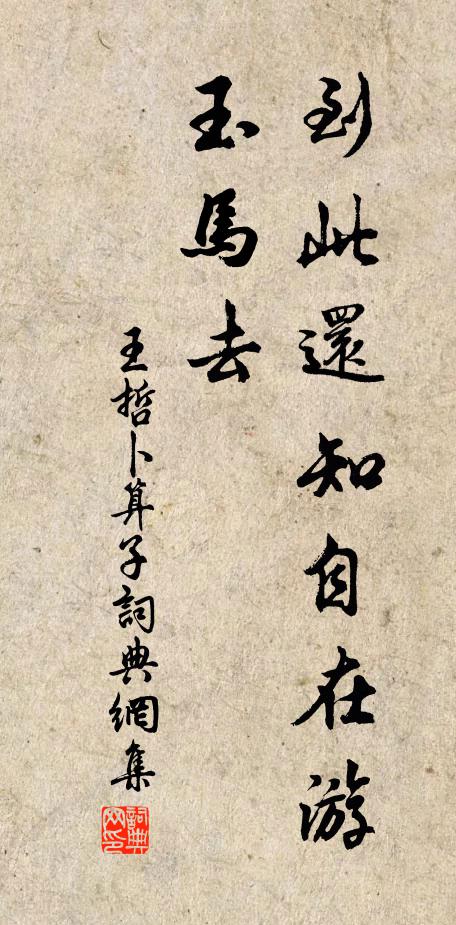 到此還知自在游
玉馬去
王哲卜算子詞典網集
詞典网印